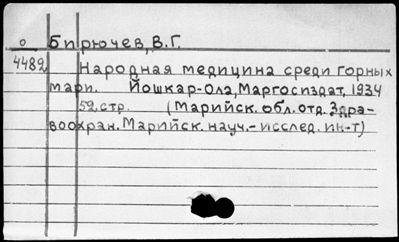 О Бирючев, В.Г.
4482 Народная медицина среди горных
мари. Йошкар-Ола, Маргосиздат, 1934
52.стр. (Марийск. обл. отд. Здра-
воохран. Марийск. науч.-исслед. ин-т)